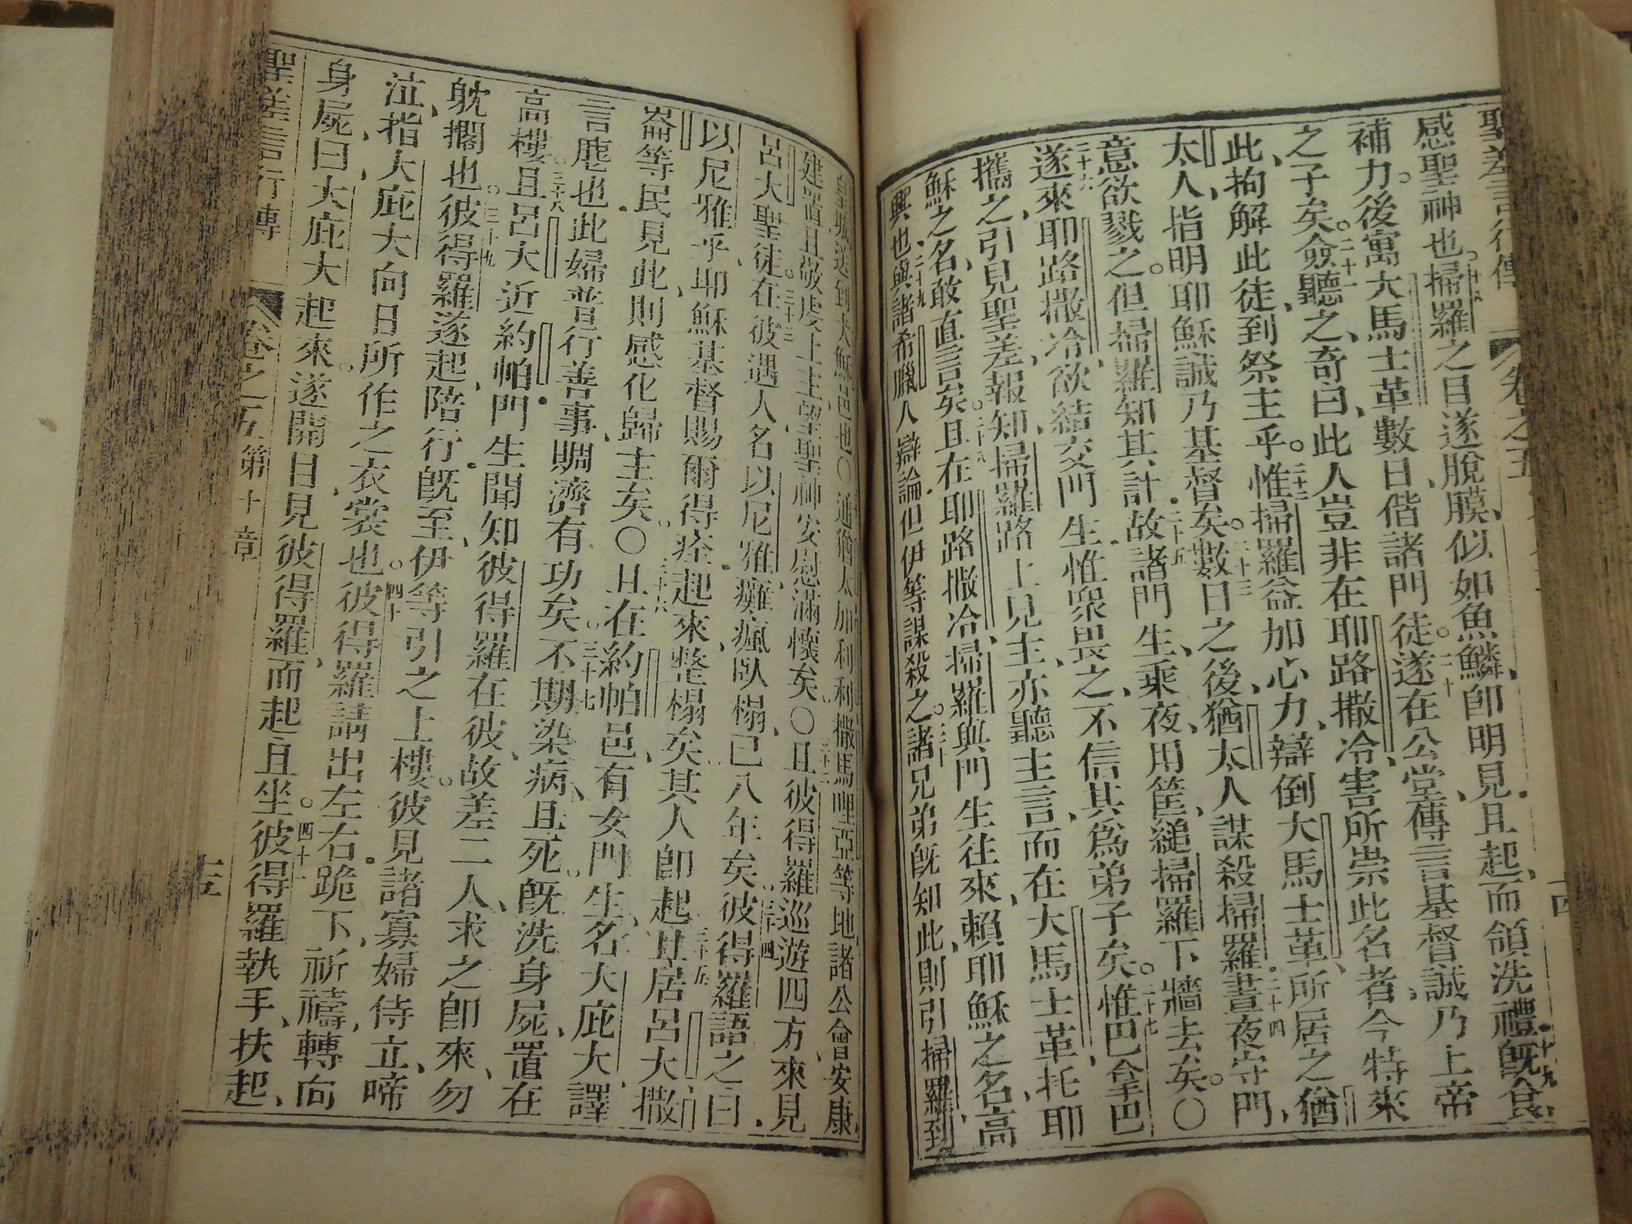 聖差言行傳 卷之五
感聖神也。十八掃羅之目遂脫膜似如魚鱗、卽明見、且起、而領洗禮。十九旣食
補力。後寓大馬士革數日、偕諸門徒。二十遂在公堂、傳言基督誠乃上帝
之子矣。二十一僉聽之奇曰、此人豈非在耶路撒冷、害所崇此名者、今特來
此、拘解此徒、到祭主乎。二十二惟掃羅益加心力、辯倒大馬士革、所居之猶
太人、指明耶穌誠乃基督矣。二十三數日之後、猶太人謀殺掃羅。二十四晝夜守門、
意欲戮之。但掃羅知其計。二十五故諸門生、乘夜、用筐縋掃羅下牆去矣。〇
二十六遂來耶路撒冷、欲結交門生、惟衆畏之、不信其爲弟子矣。二十七惟巴拿巴
攜之、引見聖差、報知掃羅路上見主、亦聽主言、而在大馬士革、托耶
穌之名、敢直言矣。二十八且在耶路撒冷、掃羅與門生往來、賴耶穌之名、高
興也。二十九與諸希臘人辯論、但伊等謀殺之。三十諸兄弟旣知此、則引掃羅到
皇城送到大穌邑也〇通猶太加利利撒馬哩亞等地、諸公會安康
建造且敬虔上主望聖神安慰滿懷矣。〇三十二且彼得羅巡遊四方、來見
呂大聖徒。三十三在彼遇人名以尼雅、癱瘋臥榻、已八年矣。三十四彼得羅語之曰、
以尼雅乎、耶穌基督賜爾得痊、起來整榻矣。其人卽起。三十五其居呂大撒
崙等民見此、則感化歸主矣。〇三十六且在約帕邑、有女門生、名大庇大、譯
言鹿也。此婦普行善事、賙濟有功矣。三十七不期染病、且死。旣洗身屍、置在
高樓。三十八且呂大近約帕、門生聞知彼得羅在彼、故差二人、求之卽來、勿
躭擱也。三十九彼得羅遂起、陪行。旣至、伊等引之上樓。彼見諸寡婦侍立、啼
泣、指大庇大向日所作之衣裳也。四十彼得羅請出左右、跪下、祈禱、轉向
身屍曰、大庇大起來。遂開目見彼得羅而起、且坐。四十一彼得羅執手、扶起、
聖差言行傳 卷之五 第十章 十五